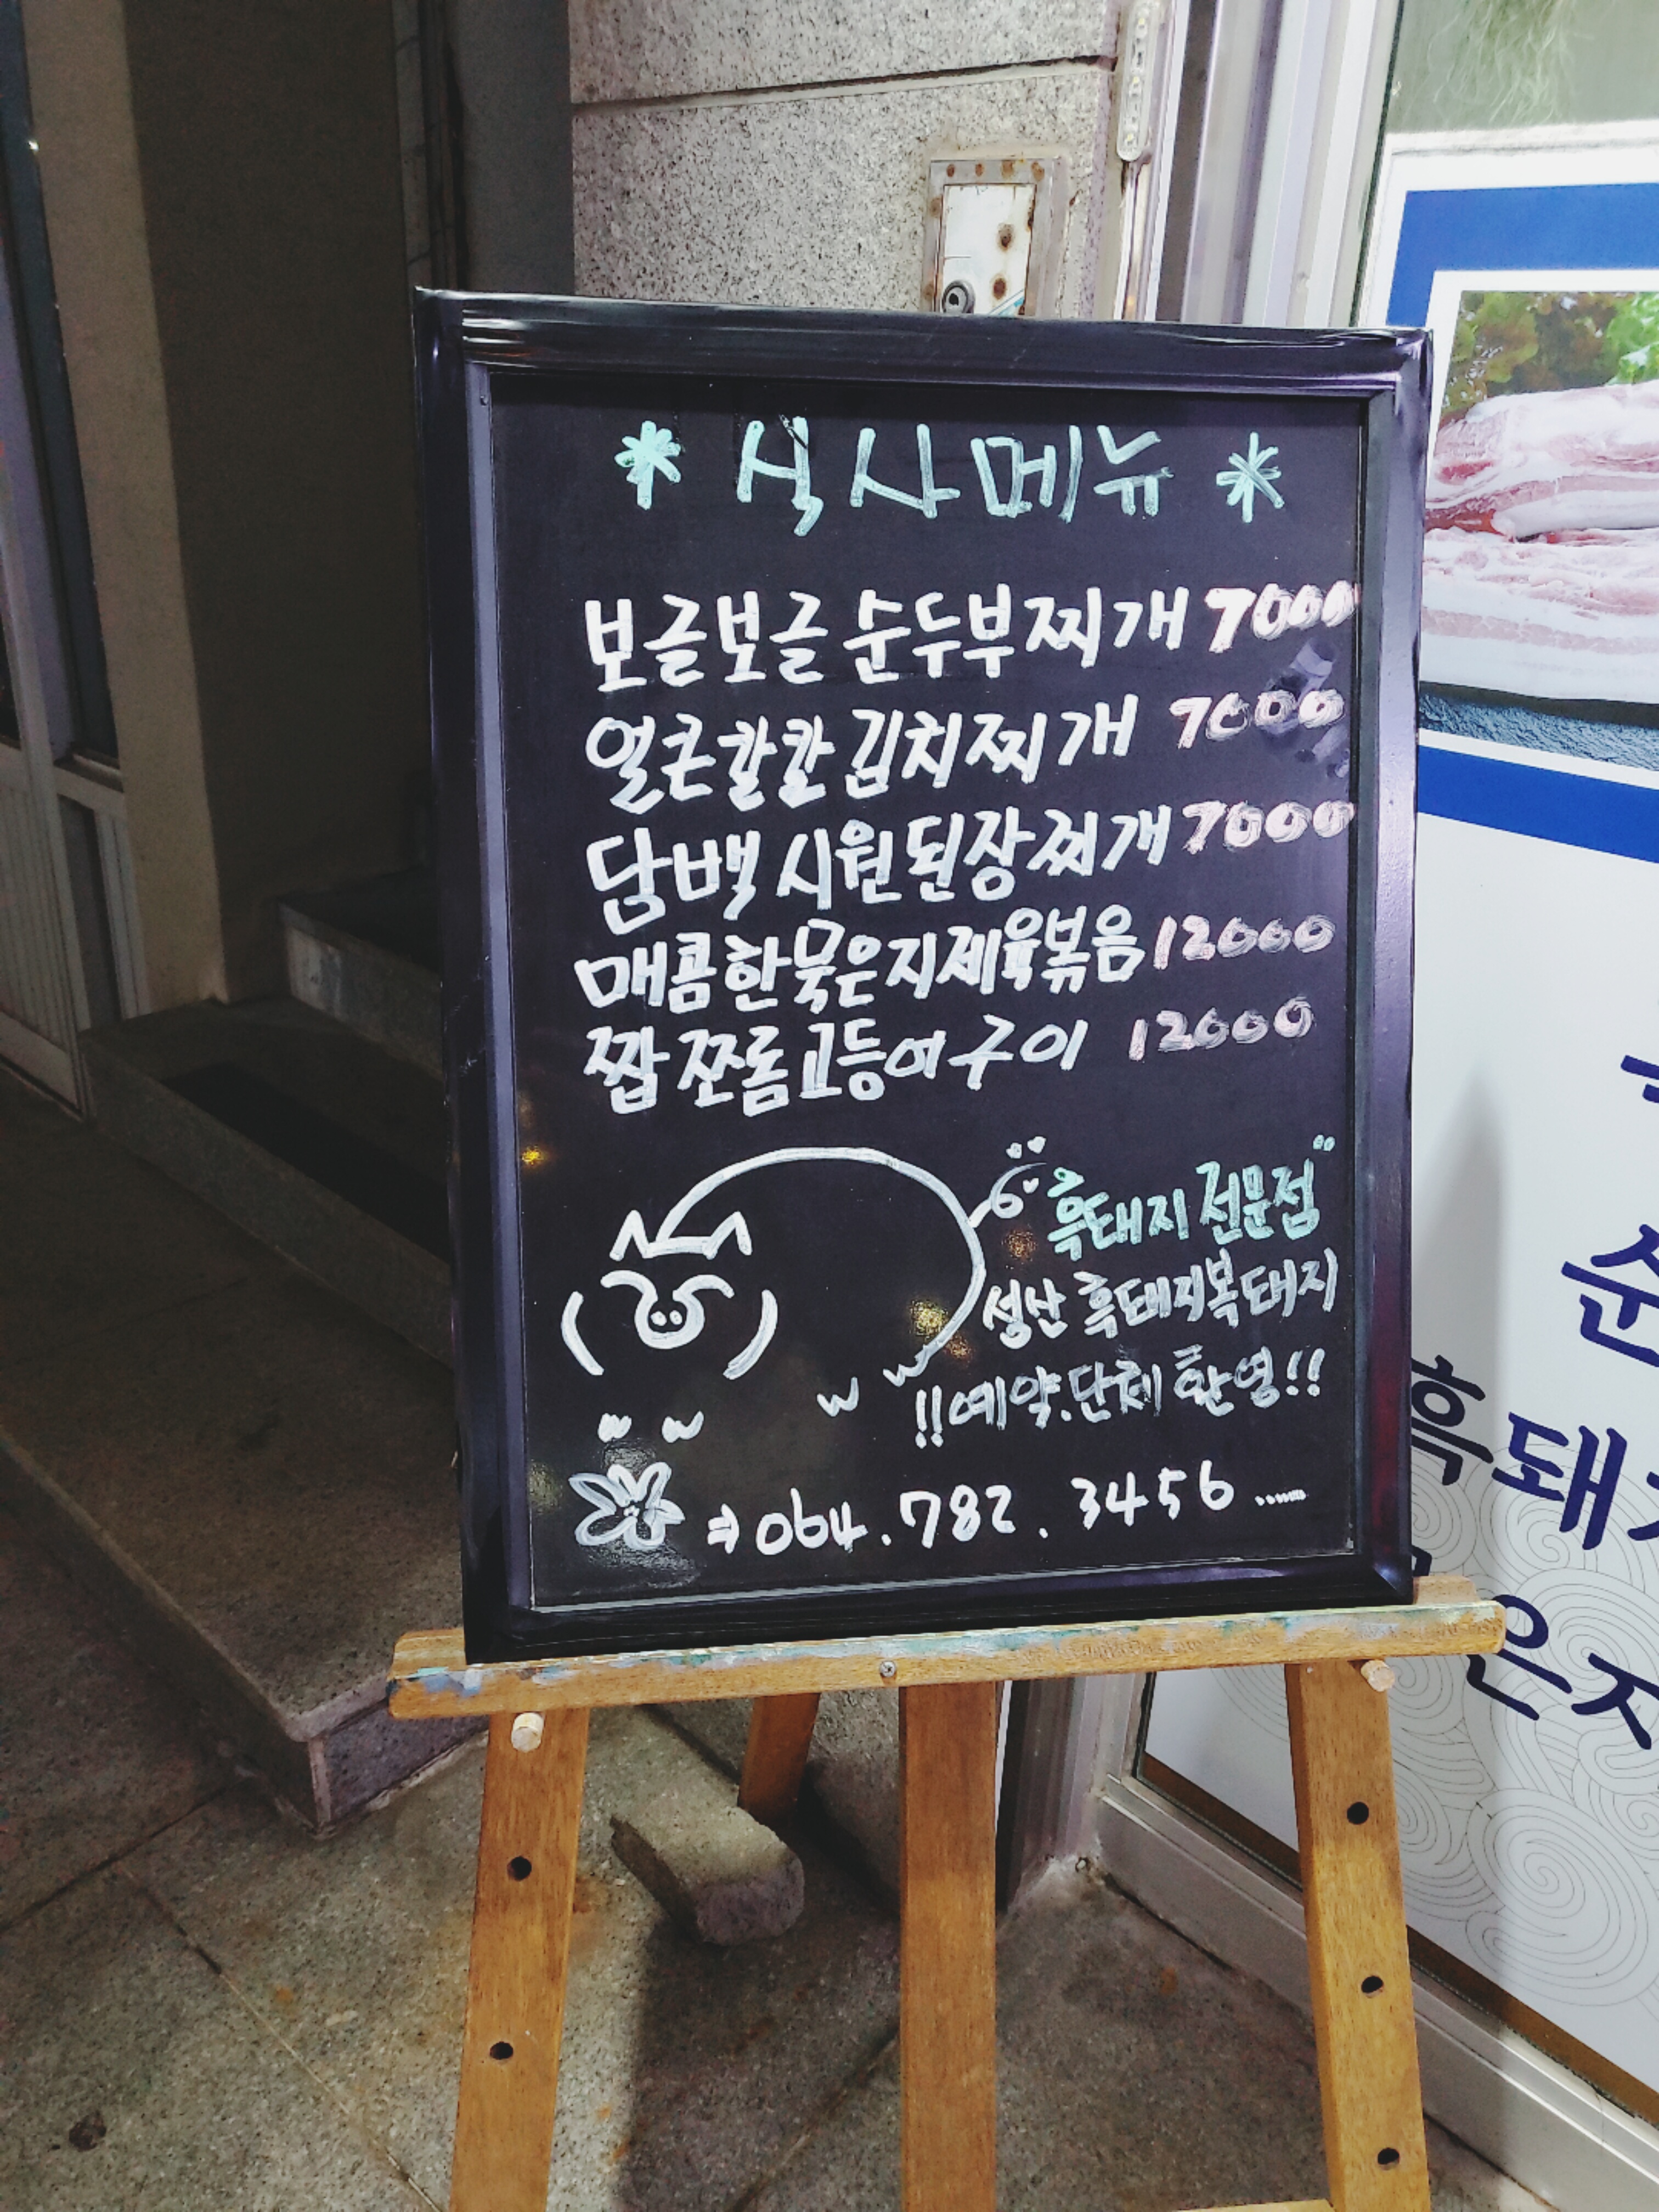 * 식사메뉴 *
보글보글 순두부찌개 7000
얼큰칼칼 김치찌개 7000
담백시원된장찌개 7000
매콤한묵은지제육볶음 12000
짭쪼롬고등어구이 12000
흑돼지 전문점"
성산 흑돼지복돼지
!!예약.단체 환영!!
⇒064.782.3456......
순
흑돼
은지